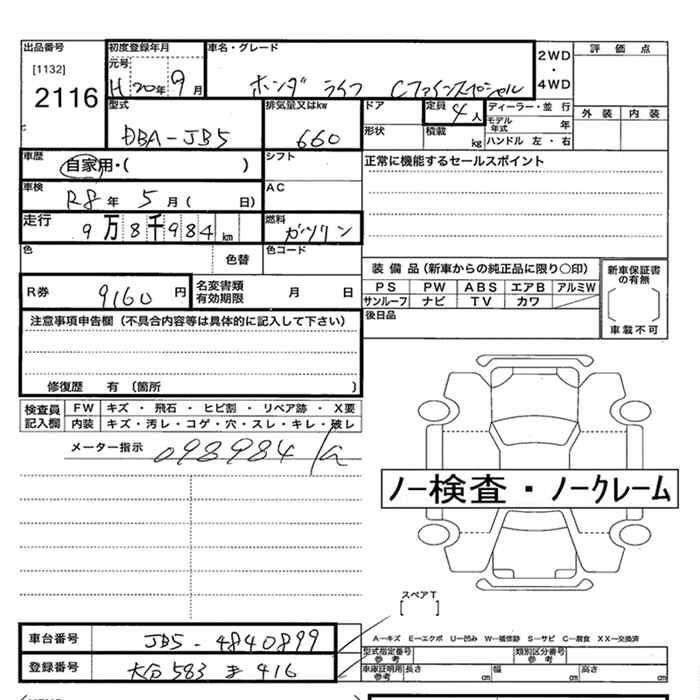 出品番号 初度登録年月 車名・グレード 2WD ・ 4WD 評 価 点
[1132] 元号
2116 H 20 年 9 月 ホンダ ライフ Cファインスペシャル
型式 排気量又はkw ドア 定員 4 人 ディーラー・並 行 外 装 内 装
DBA-JB5 660 形状 積載 kg モデル年式 年
ハンドル 左 ・ 右
車歴 自家用・( ) シフト 正常に機能するセールスポイント
車検 R8 年 5 月 ( 日) AC
走行 9 万 8 千 9 8 4 km 燃料 ガソリン
色 色替 色コード
装 備 品 (新車からの純正品に限り○印) 新車保証書の有無
R券 9160 円 名変書類有効期限 月 日 PS PW ABS エアB アルミW
サンルーフ ナビ TV カワ
注意事項申告欄 (不具合内容等は具体的に記入して下さい) 後日品 車載不可
修復歴 有 (箇所 )
検査員記入欄 FW キズ ・ 飛石 ・ ヒビ割 ・ リペア跡 ・ X要
内装 キズ・汚レ・コゲ・穴・スレ・キレ・破レ
メーター指示 098984
ノー検査・ノークレーム
スペアT
[ ]
車台番号 JB5-4840899 A-キズ E-エクボ U-凹み W-補修跡 S-サビ C-腐食 XX-交換済
型式指定番号 参考 類別区分番号 参考
登録番号 大分 583 ま 416 車庫証明用 参考 長さ cm 幅 cm 高さ cm